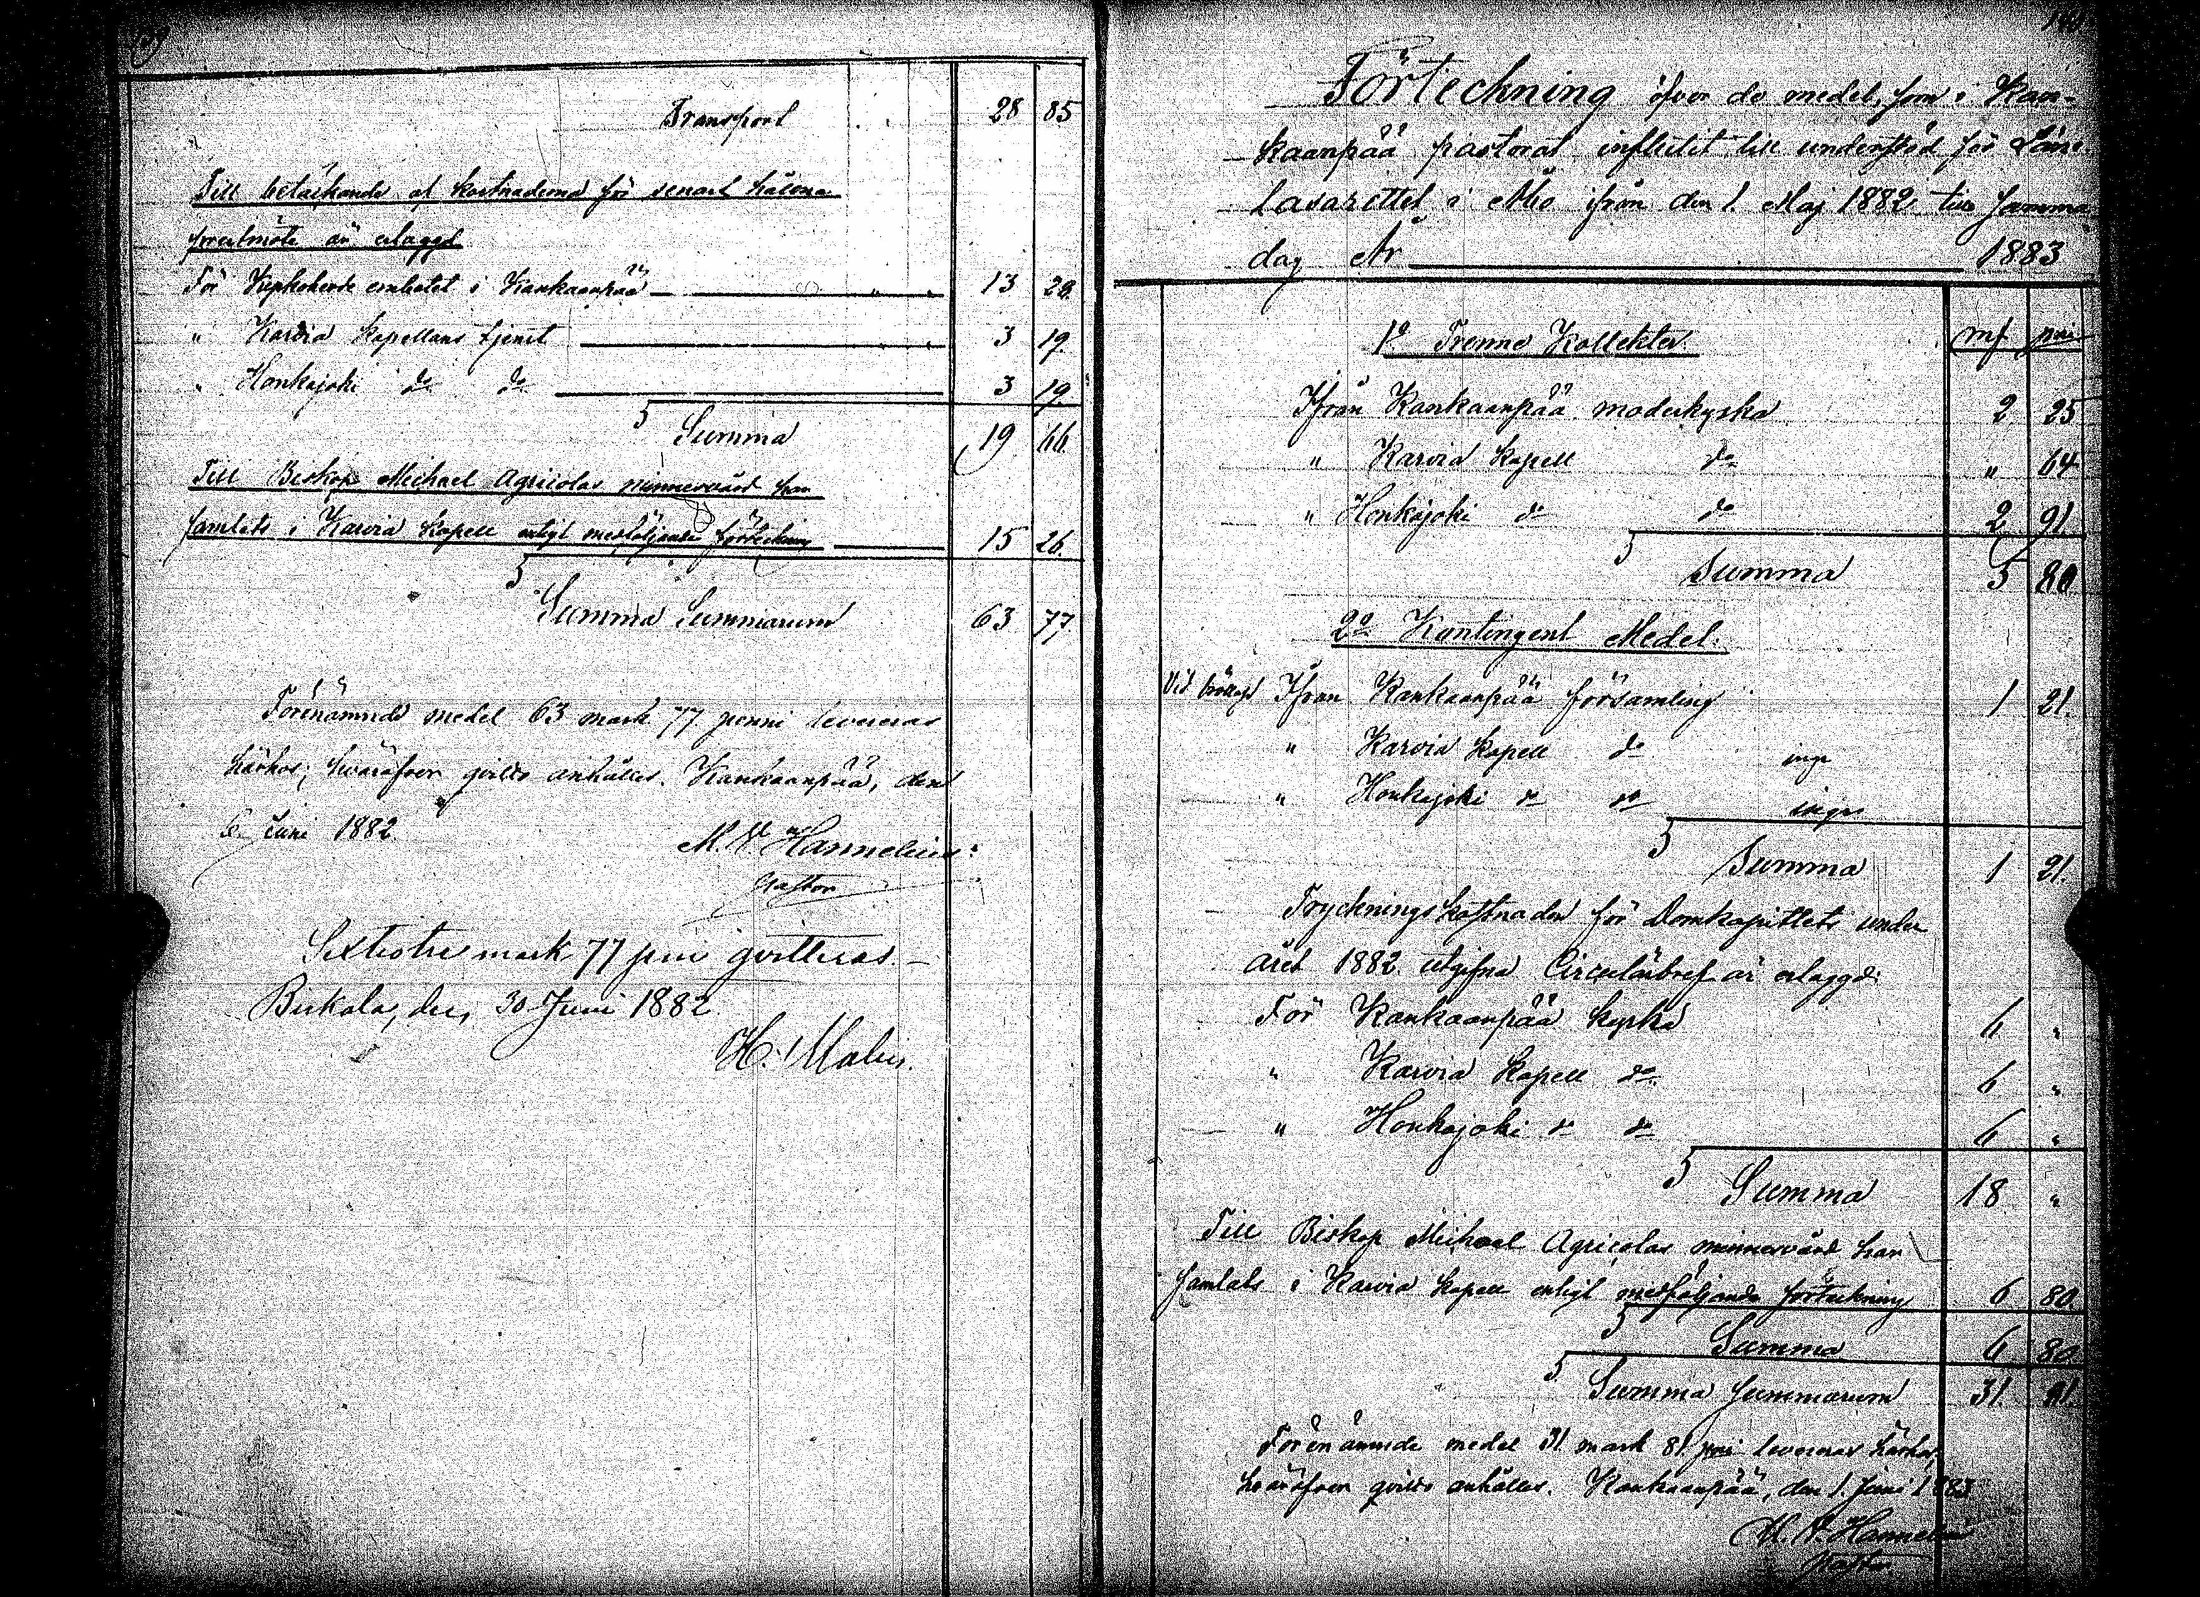 139
Transport 28 85
Till betäckande af kostnaderna för senast hållna
prestmöte är erlaggd
För Kyrkoherde embetet i Kankaanpää 13 28.
" Karvia Kapellans tjenst 3 19.
" Honkajoki do do 3 19.
Summa 19 66.
Till Biskop Michael Agricolas minnesvård har
samlats i Karvia Kapell enligt medföljande förteckning 15 26.
Summa Summarum 63 77.
Förenämnde medel 63 mark 77 penni levereras
härhos; hvaröfver qvitto anhålles. Kankaanpää, den
6. Juni 1882.
M. V. Hannelius:
Pastor
Sextiotre mark 77 pni qvitteras.–
Birkala, den 30 Juni 1882.
H. Malin.
140
Förteckning öfver de medel, som i Kan-
kaanpää pastorat influtit till understöd för Läns-
lasarettet i Åbo ifrån den 1. Maj 1882 till samma
dag År 1883
1o Trenne Kollekter. mf pni
Ifrån Kankaanpää moderkyrka 2 25
" Karvia Kapell do " 64
" Honkajoki do do 2 91
Summa 5 80
2o Kontingent Medel.
Vid bröllop Ifrån Kankaanpää församling 1 21.
" Karvia Kapell do inga
" Honkajoki do do inga
Summa 1 21.
Tryckningskostnaden för Domkapitlets under
året 1882 utgifna Circulärbref är erlaggd:
För Kankaanpää kyrka 6 "
" Karvia Kapell do 6 "
" Honkajoki do do 6 "
Summa 18 "
Till Biskop Michael Agricolas minnesvård har
samlats i Karvia Kapell enligt medföljande förteckning 6 80
Summa 6 80.
Summa Summarum 31. 81.
Förenämnde medel 31 mark 81 pni levereras härhos,
hvaröfver qvitto anhålles. Kankaanpää, den 1. Juni 1883
M. V. Hannelius
Pastor